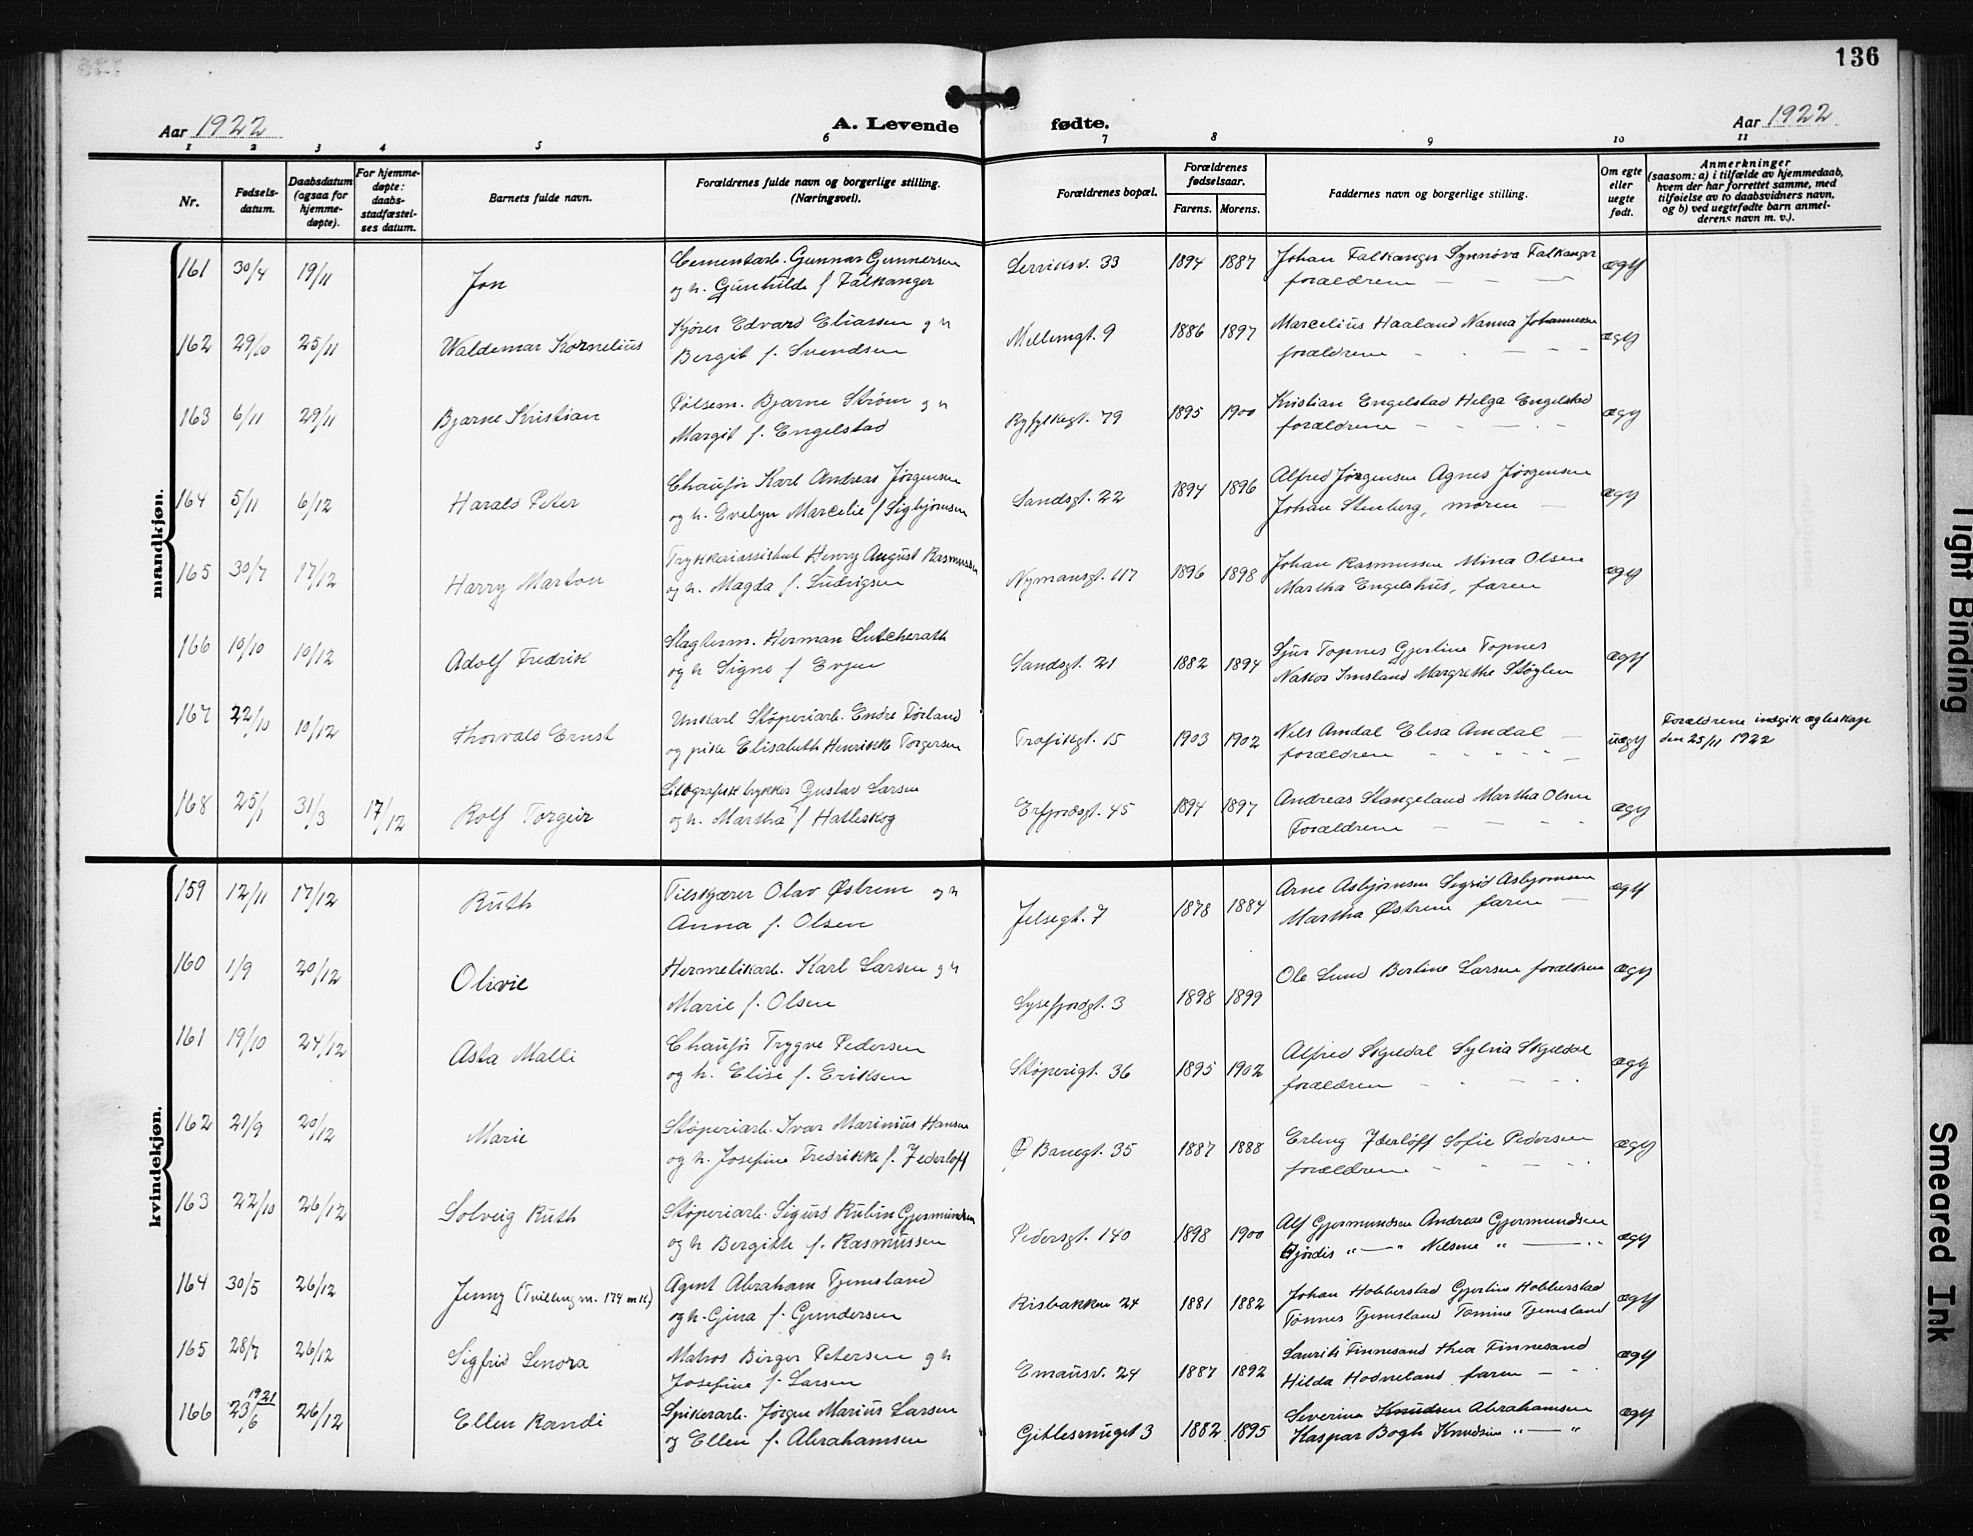 136
Aar 1922
A. Levende
fødte.
Aar 1922
1 2 3 4 5 6 7 8 9 10 11
Nr.
Fødsels-
datum.
Daabsdatum
(ogsaa for
hjemme-
døpte).
For hjemme-
døpte:
daabs-
stadfæstel-
ses datum.
Barnets fulde navn.
Forældrenes fulde navn og borgerlige stilling.
(Næringsvei).
Forældrenes bopæl.
Forældrenes
fødselsaar.
Farens. Morens.
Faddernes navn og borgerlige stilling.
Om egte
eller
uegte
født.
Anmerkninger
(saasom: a) i tilfælde av hjemmedaab,
hvem der har forrettet samme, med
tilføielse av to daabsvidners navn,
og b) ved uegtefødte barn anmel-
derens navn m. v.).
mandkjøn.
161 30/4 19/11 Jon Cementarb. Gunnar Gunnersen
og h. Gunhilde f Falkanger
Lerviksv. 33 1894 1887 Johan Falkanger Synnøva Falkanger
forældrene — — — ægt
162 29/10 25/11 Waldemar Kornelius Kjører Edvard Eliassen og h
Bergit f. Svendsen
Mellemgt. 9 1886 1897 Marcelius Haaland Nanna Johannesen
forældrene ægt
163 6/11 29/11 Bjarne Kristian Pølsem. Bjarne Strøm og h
Margit f. Engelstad
Ryfylkegt. 79 1895 1900 Kristian Engelstad Helga Engelstad
forældrene ægt
164 5/11 6/12 Harald Peter Chaufør Karl Andreas Jørgensen
og h. Evelyn Marcelie f Sigbjørnsen
Sandsgt. 22 1894 1896 Alfred Jørgensen Agnes Jørgensen
Johan Stenberg, moren — ægt
165 30/7 17/12 Harry Marton Trykkeriassistent Henry August Rasmussen
og h. Magda f. Ludvigsen
Nymansgt. 117 1896 1898 Johan Rasmussen Mina Olsen
Martha Engelshus, faren ægt
166 10/10 10/12 Adolf Fredrik Slagterm. Herman Lutcherath
og h Signe f Evjen
Sandsgt. 21 1882 1894 Sjur Topnes Gjertine Topnes
Imsland Margrethe ægt
167 22/10 10/12 Thorvald Ernst Unkarl Støperiarb. Endre Førland
og pike Elisabeth Henrikke Torgersen
Trafikgt. 15 1903 1902 Nils Amdal Elisa Amdal —
forældrene uægt
Forældrene indgik ægteskap
den 25/11 1922
168 25/1 31/3 17/12 Rolf Torgeir Litografisktrykker Gustav Larsen
og h. Martha f Hatleskog
Erfjordsgt. 45 1894 1897 Andreas Stangeland Martha Olsen
Forældrene ægt
kvindekjøn.
159 12/11 17/12 Ruth Tilskjærer Olav Østrem og h
Anna f. Olsen
Jelsegt. 7 1878 1884 Arne Asbjørnsen Sigrid Asbjørnsen
Martha Østrem faren — ægt
160 1/9 20/12 Olivie Hermetikarb. Karl Larsen og h
Marie f. Olsen
Lysefjordgt. 3 1898 1899 Ole Lund Bertine Larsen forældrene ægt
161 19/10 24/12 Asta Malli Chaufør Trygve Pedersen
og h. Elise f. Eriksen
Støperigt. 36 1895 1902 Alfred Skjeldal Sylvia Skjeldal
forældrene ægt
162 21/9 20/12 Marie Støperiarb. Ivar Marinius Hansen
og h. Josefine Fredrikke f. Federløff
Ø Banegt. 35 1887 1888 Erling Sofie Pedersen
forældrene ægt
163 22/10 26/12 Solveig Ruth Støperiarb. Sigurd Rubin Gjermundsen
og h Bergitte f. Rasmussen
Pedersgt. 140 1898 1900 Alf Gjermundsen Andreas Gjermundsen
Hjørdis „ — „ Nilsine „ — „ ægt
164 30/5 26/12 Jenny (Tvilling m. 174 m.k) Agent Abraham Tjemsland
og h. Gina f. Gundersen
Risbakken 24 1881 1882 Johan Hobberstad Gjertine Hobberstad
Tønnes Tjemsland Tomine Tjemsland ægt
165 28/7 26/12 Sigfrid Lenora Matros Birger Petersen og h
Josefine f. Larsen
Emausv. 24 1887 1892 Laurits Finnesand Thea Finnesand
Hilda Hodneland faren — ægt
166 23/6 1921 26/12 Ellen Randi Spikerarb. Jørgen Marius Larsen
og Ellen f. Abrahamsen
Gitlesmuget 3 1882 1895 Severine Knudsen Abrahamsen
Kaspar Bogh Knudsen „ — „ ægt
Tight Binding
Smeared Ink